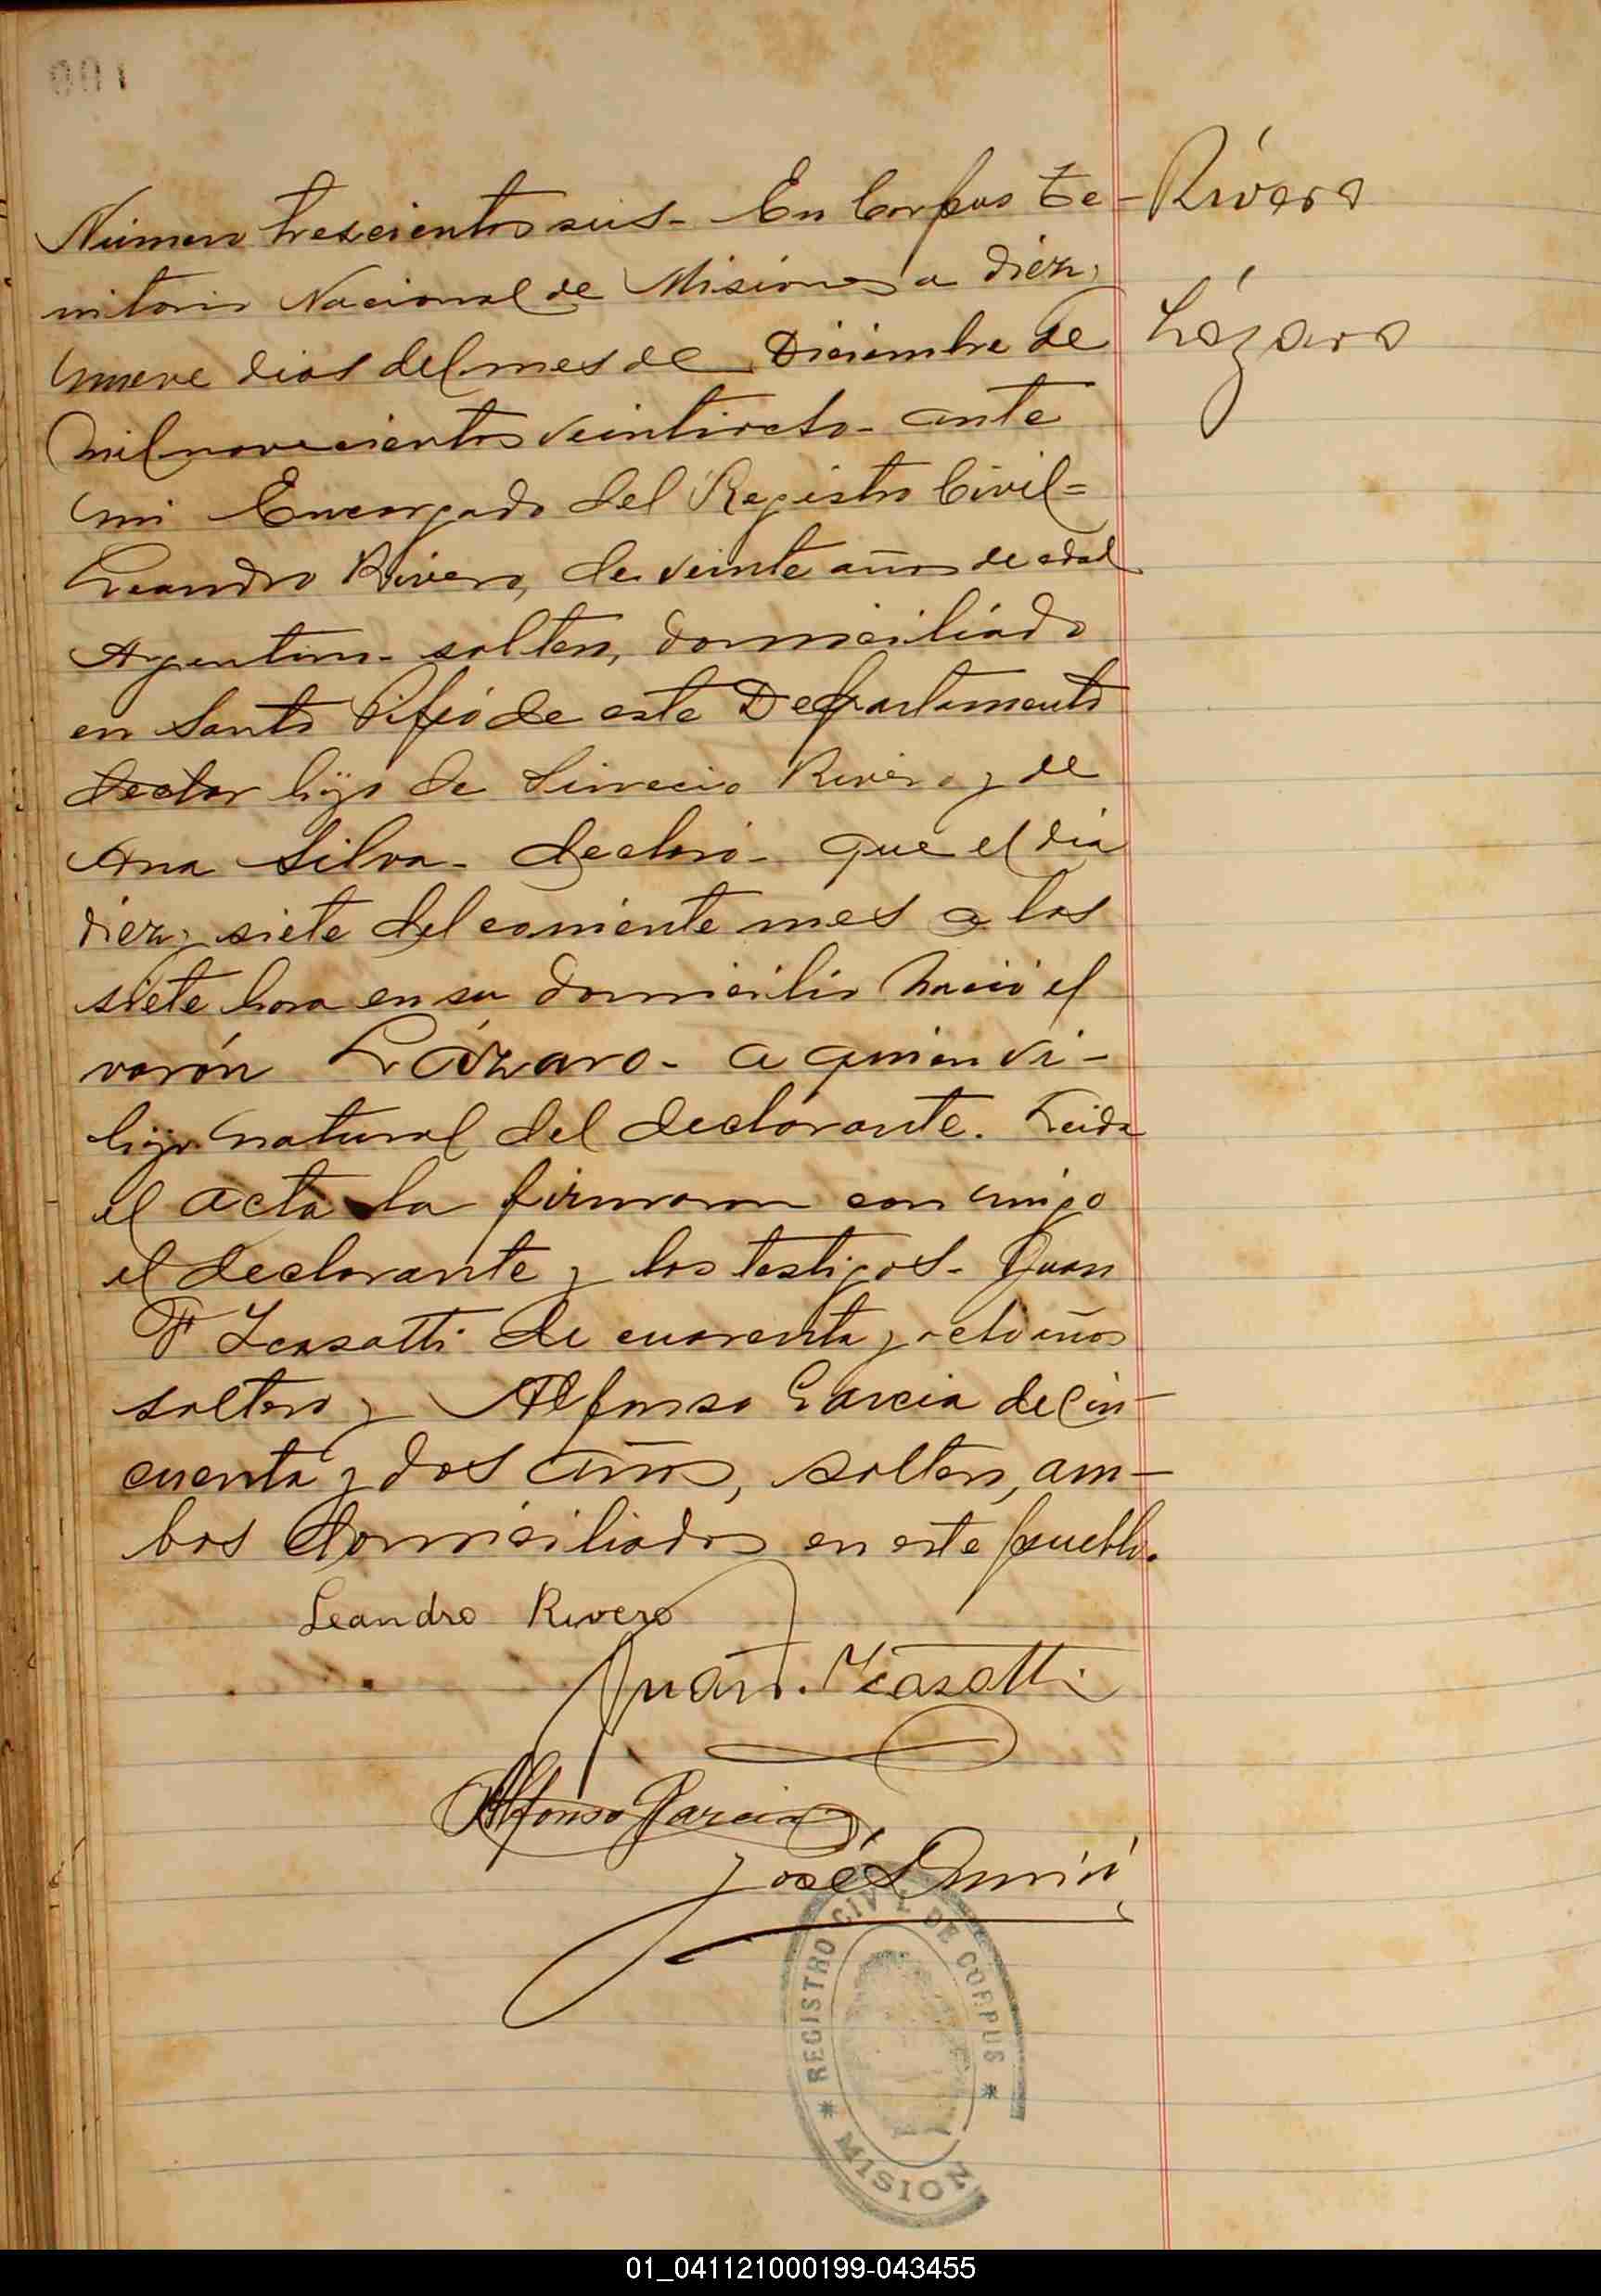 001
Número trescientos seis - En Corpus Te-
rritorio Nacional de Misiones a diez y
nueve dias del mes de Diciembre de
mil novecientos veintiocho - ante
mi Encargado del Registro Civil =
Leandro Rivero, de veinte años de edad
Argentino - soltero, domiciliado
en Santo Pipó de este Departamento
declar hijo de Rivero y de
Ana Silva - declaró - que el dia
diez y siete del corriente mes a las
siete hora en su domicilio nació el
varón Lázaro - a quien vi -
hijo natural del declarante. Leida
el acta la firmaron con migo
el declarante y los testigos - Juan
F Icasatti de cuarenta y ocho años
soltero y Alfonso Garcia de cin-
cuenta y dos años, soltero, am-
bos domiciliados en este pueblo.
Rivero
Lázaro
Leandro Rivero
Juan F. Icasatti
Alfonso Garcia
José
REGISTRO CIVIL DE CORPUS
MISION
01_041121000199-043455